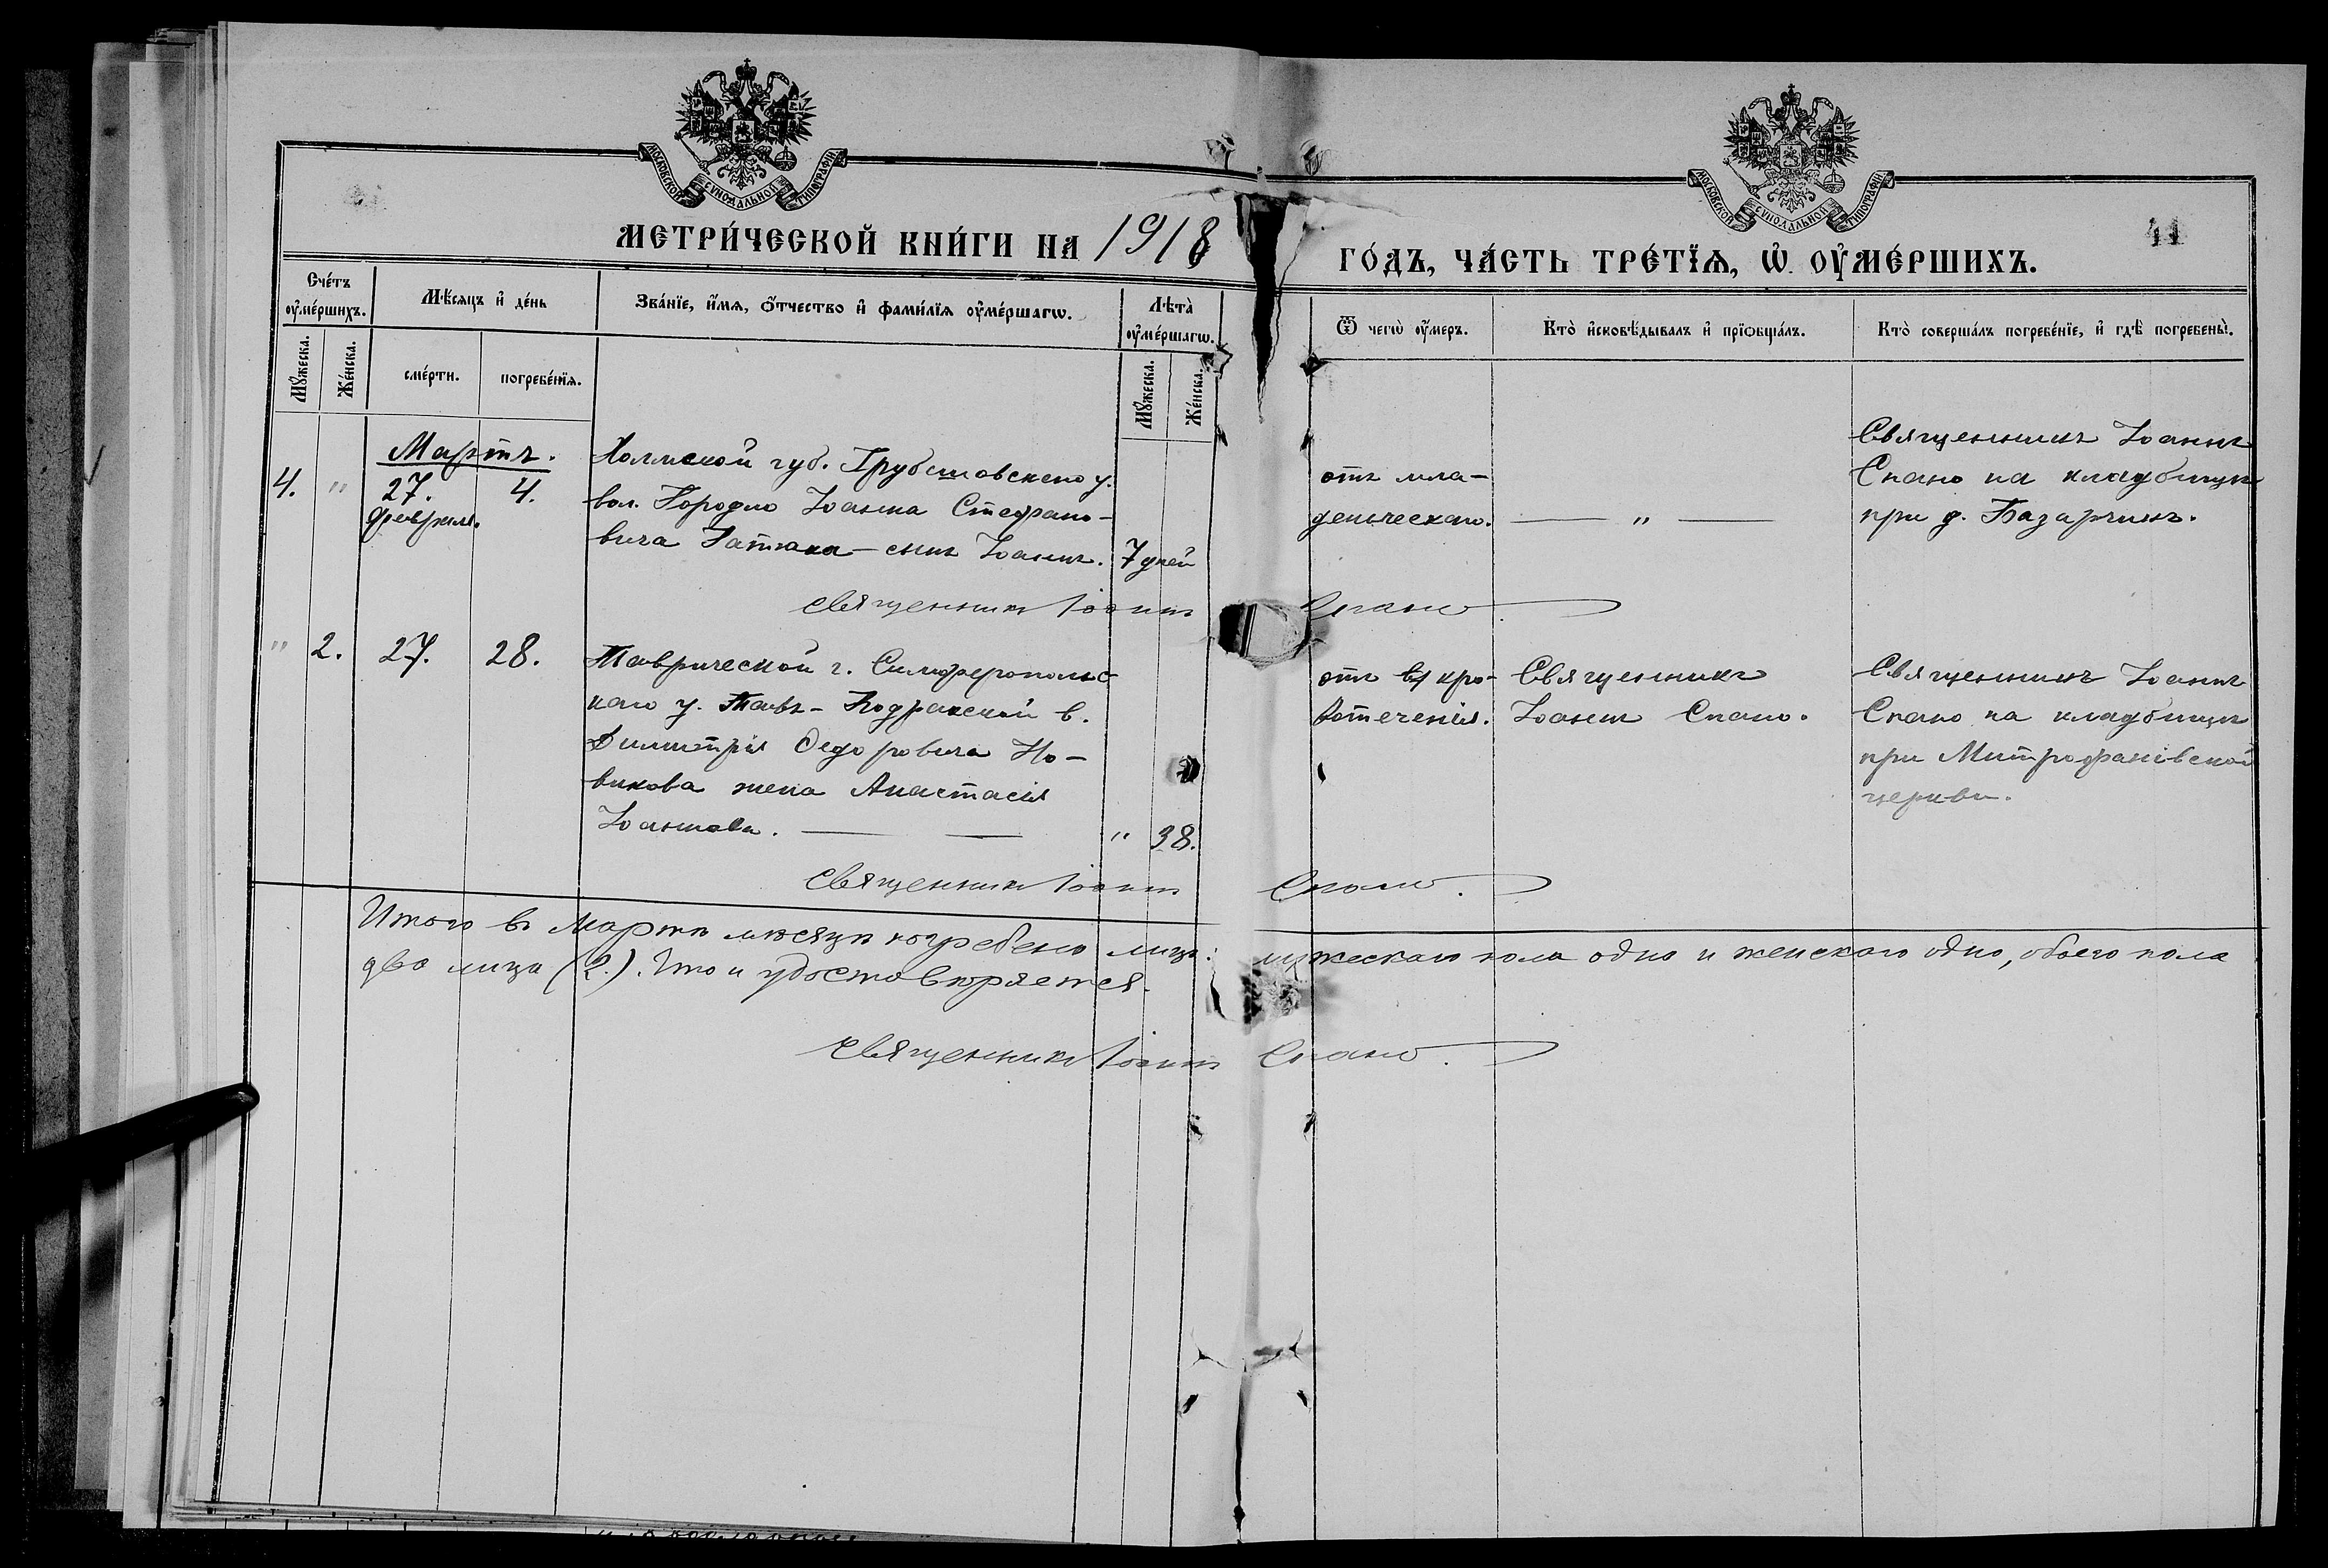 МОСКОВСКОЙ СѴНОДАЛЬНОЙ ТИПОГРАФІИ
МОСКОВСКОЙ СѴНОДАЛЬНОЙ ТИПОГРАФІИ
МЕТРИ́ЧЕСКОЙ КНИ́ГИ НА 1918 ГО́ДЪ, ЧА́СТЬ ТРЕ́ТЇѦ, Ѡ҆ ОУ҆МЕ́РШИХЪ.
41
Сче́тъ оу҆ме́ршихъ.
Мѣ́сяцъ и҆ де́нь
Зва́нїе, и҆́мѧ, ѻ҆́тчество и҆ фами́лїѧ оу҆ме́ршагѡ.
Лѣта̀ оу҆ме́ршагѡ.
Ѿ чегѡ̀ оу҆́меръ.
Кто̀ и҆сповѣ́дывалъ и҆ прїѡбща́лъ.
Кто̀ соверша́лъ погребе́нїе, и҆ гдѣ̀ погребены̀.
Мꙋ́жеска.
Же́нска.
сме́рти.
погребе́нїѧ.
Мꙋ́жеска.
Же́нска.
Мартъ.
4. " 27. 4.
февраля.
Холмской губ. Грубешовскаго у.
вол. Городло Іоанна Стефано-
вича Гатюка - сынъ Іоаннъ. 7 дней
отъ мла-
денческаго. — " —
Священникъ Іоаннъ
Спано на кладбищѣ
при д. Базарчикъ.
Священникъ Іоаннъ Спано
" 2. 27. 28.
Таврической г. Симферопольс-
каго у. Тавк- Бодракской в.
Димитрія Федоровича Но-
викова жена Анастасія
Іоаннова. — — " 38.
отъ кро-
вотеченія.
Священникъ
Іоаннъ Спано.
Священникъ Іоаннъ
Спано на кладбищѣ
при Митрофаніевской
церкви.
Священникъ Іоаннъ Спано.
Итого въ Мартѣ мѣсяцѣ погребено лицъ: мужескаго пола одно и женскаго одно, обоего пола
два лица (2.). Что и удостовѣряется.
Священникъ Іоаннъ Спано.